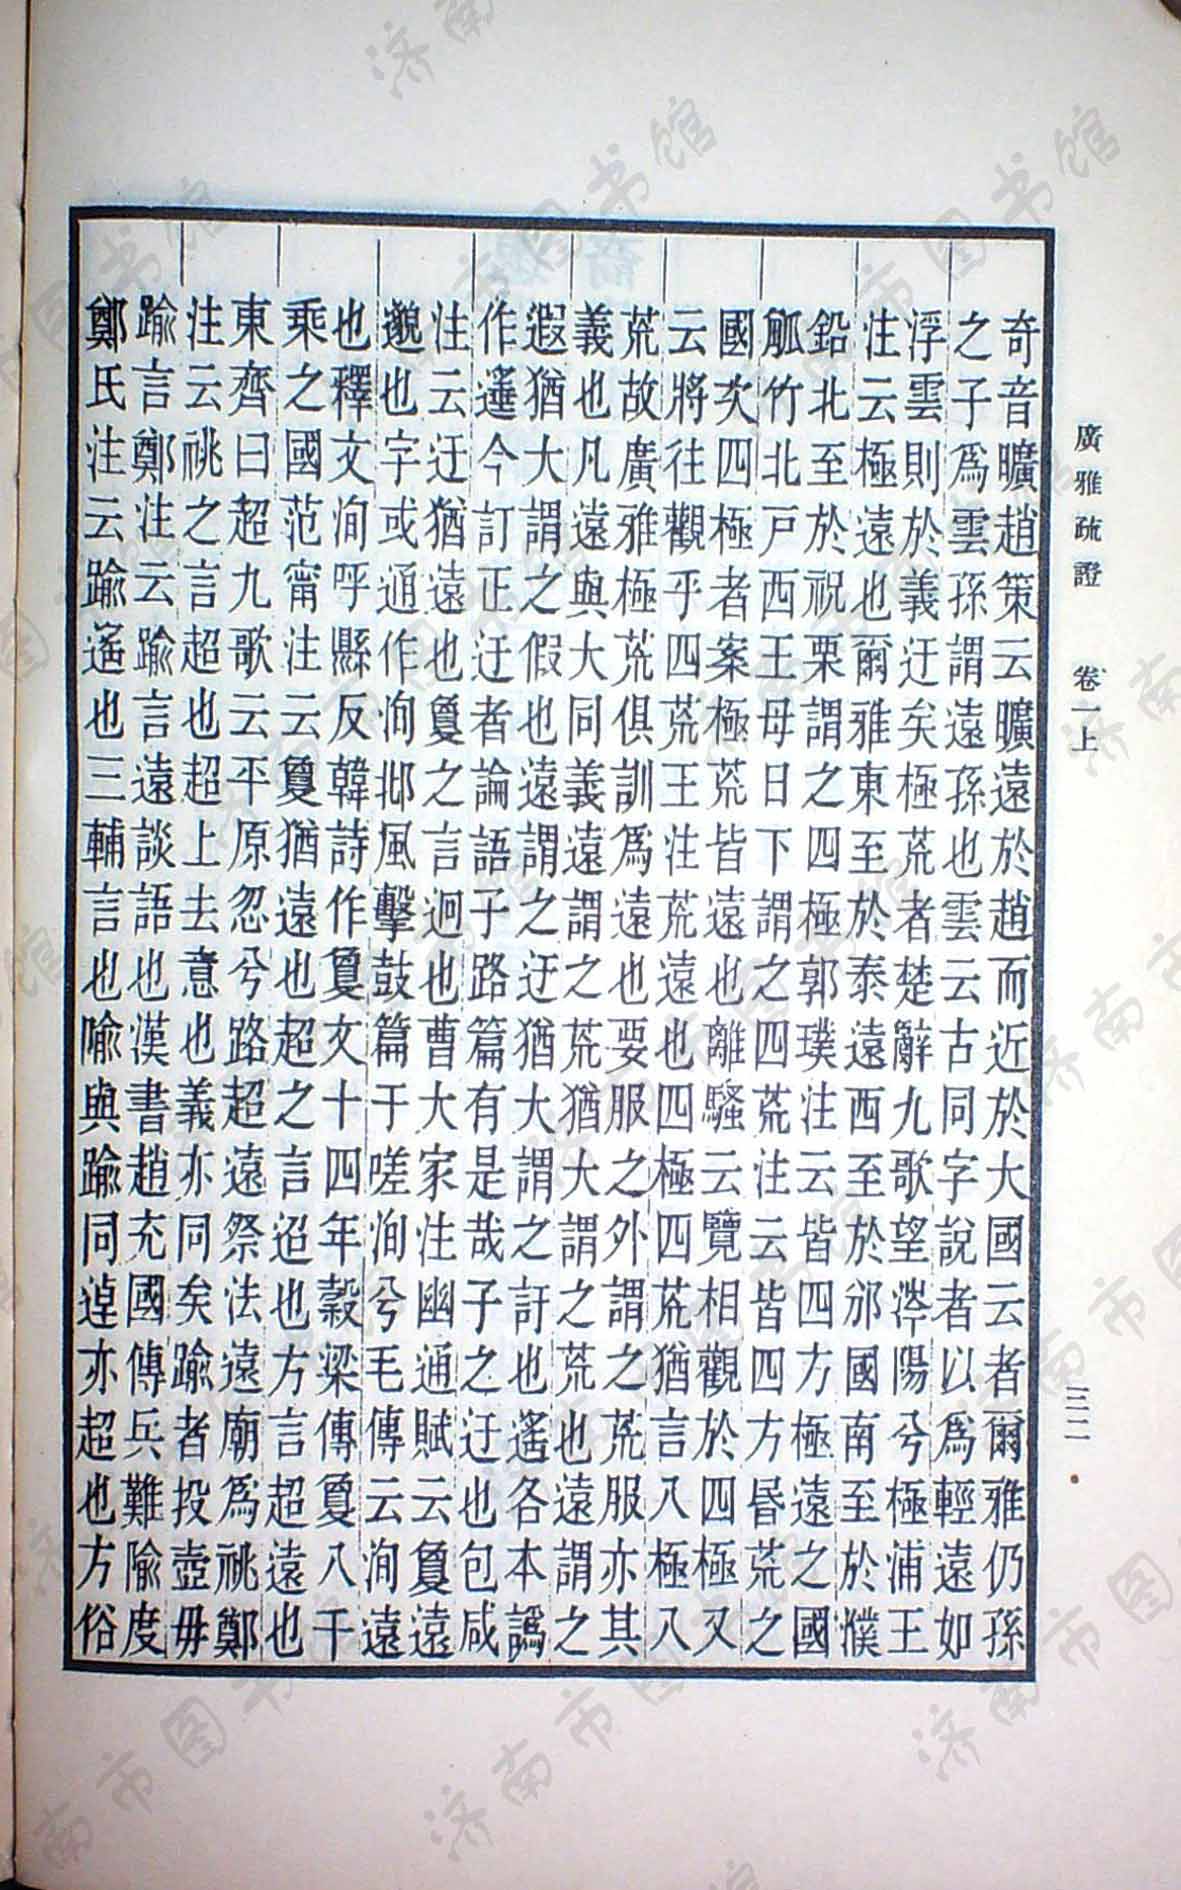 廣雅疏證 卷一上 三二
奇音曠趙策云曠遠於趙而近於大國云者爾雅仍孫
之子爲雲孫謂遠孫也雲云古同字說者以爲輕遠如
浮雲則於義迂矣極荒者楚辭九歌望涔陽兮極浦王
注云極遠也爾雅東至於泰遠西至於邠國南至於濮
鉛北至於祝栗謂之四極郭璞注云皆四方極遠之國
觚竹北戶西王母日下謂之四荒注云皆四方昬荒之
國次四極者案極荒皆遠也離騷云覽相觀於四極又
云將往觀乎四荒王注荒遠也四極四荒猶言八極八
荒故廣雅極荒俱訓爲遠也要服之外謂之荒服亦其
義也凡遠與大同義遠謂之荒猶大謂之荒也遠謂之
遐猶大謂之假也遠謂之迂猶大謂之訏也遙各本譌
作今訂正迂者論語子路篇有是哉子之迂也包咸
注云迂猶遠也敻之言迥也曹大家注幽通賦云敻遠
邈也字或通作洵邶風擊鼓篇于嗟洵兮毛傳云洵遠
也釋文洵呼縣反韓詩作敻文十四年穀梁傳敻入千
乘之國范甯注云敻猶遠也超之言迢也方言超遠也
東齊曰超九歌云平原忽兮路超遠祭法遠廟爲祧鄭
注云祧之言超也超上去意也義亦同矣踰者投壺毋
踰言鄭注云踰言遠談語也漢書趙充國傳兵難隃度
鄭氏注云踰遙也三輔言也隃與踰同逴亦超也方俗